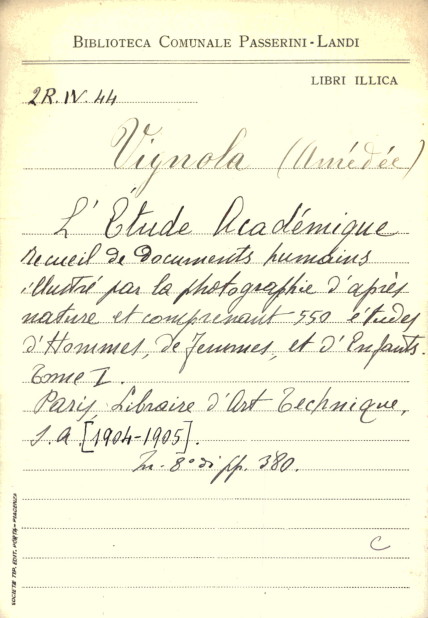 BIBLIOTECA COMUNALE PASSERINI-LANDI
LIBRI ILLICA
2R.IV.44
Vignola (Amédée)
L'Étude Académique
recueil de Documents humains
illustré par la photographie d'après
nature et comprenant 550 études
d'Hommes, de Femmes, et d'Enfants.
Tome I.
Paris, Libraire d'Art Technique,
S.a. [1904-1905].
In-8° di pp. 380.
C
SOCIETÀ TIP. EDIT. PORTA-PIACENZA